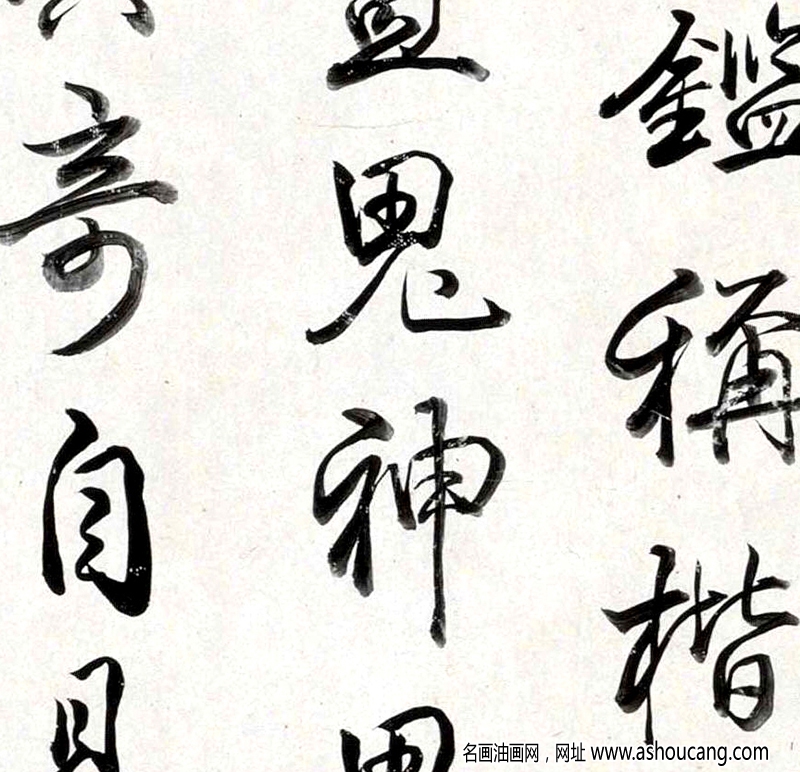 鑑稱楷
鬼神
奇自
名画油画网，网址 www.ashoucang.com